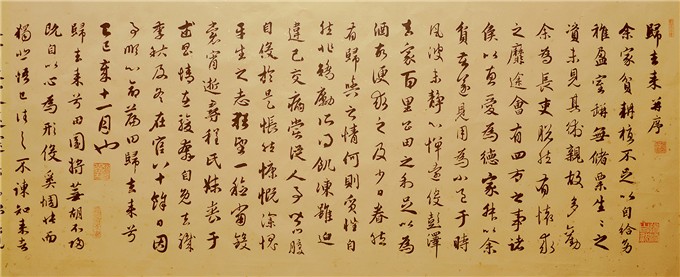 歸去来并序
余家貧耕植不足以自給幼
稚盈室缾無儲粟生生之
資未見其術親故多勸
余為長吏脱然有懷求
之靡途會有四方之事諸
侯以惠愛為德家叔以余
貧苦遂見用為小邑于時
風波未靜心憚遠役彭澤
去家百里公田之利足以為
酒故便求之及少日眷然
有歸歟之情何則質性自
然非矯勵所得飢凍雖迫
違已交病嘗從人事皆口腹
自役於是悵然慷慨深愧
平生之志猶望一稔當斂
裳宵逝尋程氏妹喪于
武昌情在駿奔自免去職
季秋及冬在官八十餘日因
事順心命篇曰歸去来兮
乙巳歲十一月也
歸去来兮田園將蕪胡不歸
既自以心為形役奚惆悵而
獨悲悟已往之不諫知来者